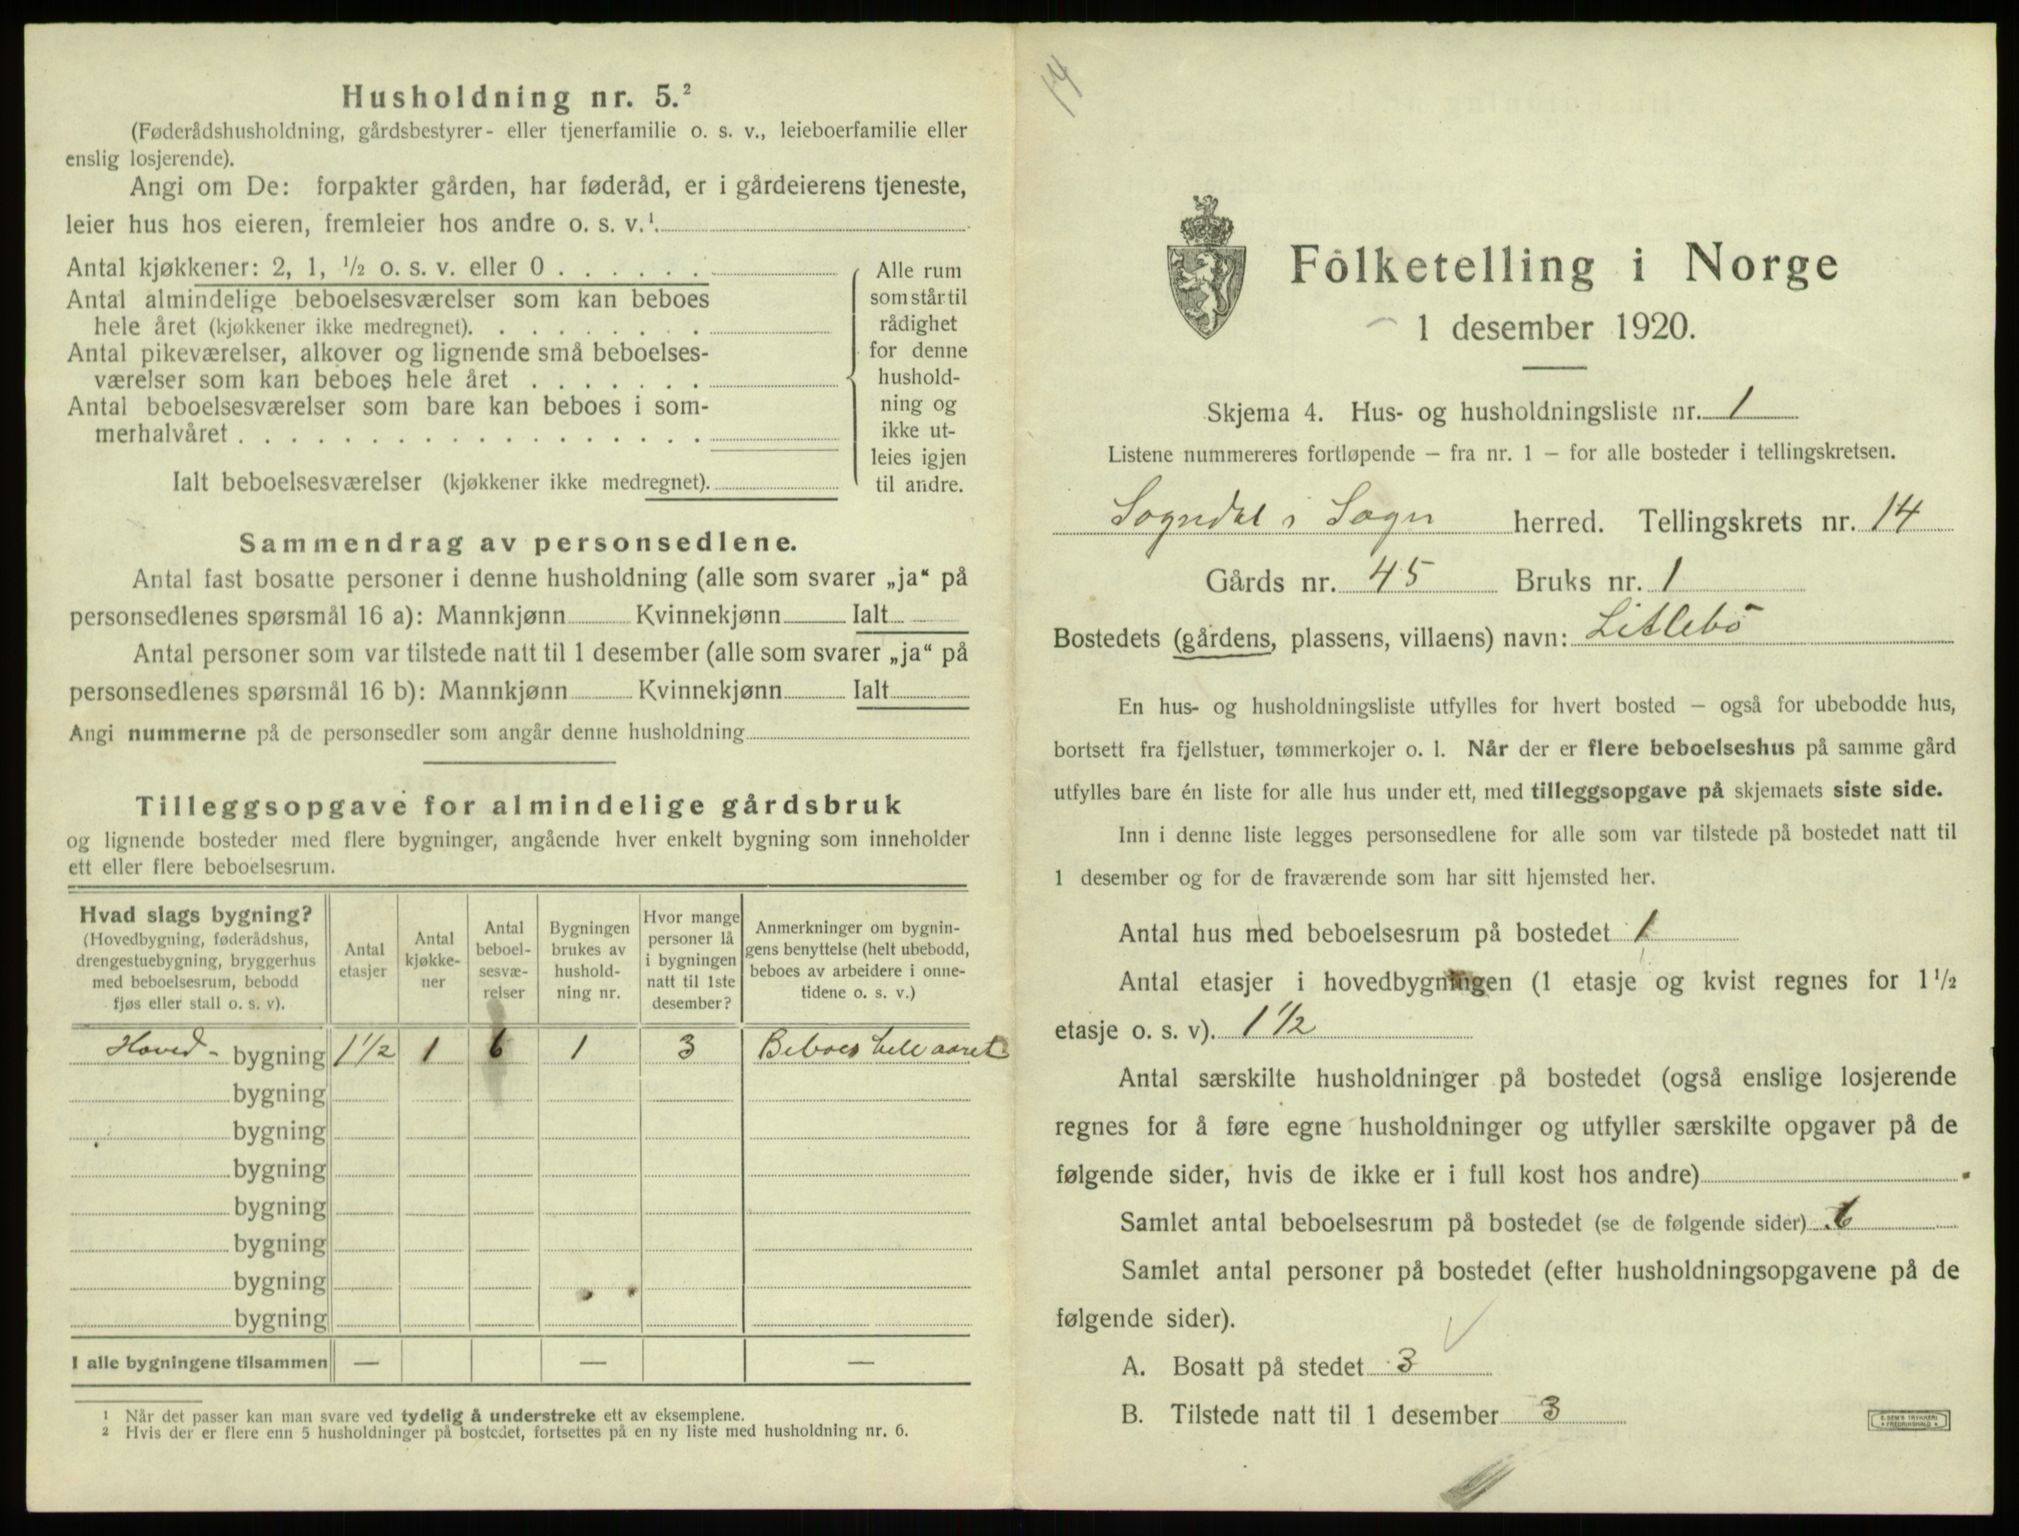 Husholdning nr. 5.²
(Føderådshusholdning, gårdsbestyrer- eller tjenerfamilie o. s. v., leieboerfamilie eller
enslig losjerende).
Angi om De: forpakter gården, har føderåd, er i gårdeierens tjeneste,
leier hus hos eieren, fremleier hos andre o. s. v.¹
Antal kjøkkener: 2, 1, ½ o. s. v. eller 0 . . . . . .
Antal almindelige beboelsesværelser som kan beboes
hele året (kjøkkener ikke medregnet). . . . . . . . .
Antal pikeværelser, alkover og lignende små beboelses-
værelser som kan beboes hele året . . . . . . .
Antal beboelsesværelser som bare kan beboes i som-
merhalvåret . . . . . . . . . . . . . . . . . .
Ialt beboelsesværelser (kjøkkener ikke medregnet).
Alle rum
som står til
rådighet
for denne
hushold-
ning og
ikke ut-
leies igjen
til andre.
Sammendrag av personsedlene.
Antal fast bosatte personer i denne husholdning (alle som svarer „ja“ på
personsedlenes spørsmål 16 a): Mannkjønn Kvinnekjønn Ialt
Antal personer som var tilstede natt til 1 desember (alle som svarer „ja“ på
personsedlenes spørsmål 16 b): Mannkjønn Kvinnekjønn Ialt
Angi nummerne på de personsedler som angår denne husholdning
Tilleggsopgave for almindelige gårdsbruk
og lignende bosteder med flere bygninger, angående hver enkelt bygning som inneholder
ett eller flere beboelsesrum.
Hvad slags bygning?
(Hovedbygning, føderådshus,
drengestuebygning, bryggerhus
med beboelsesrum, bebodd
fjøs eller stall o. s. v).
Antal
etasjer
Antal
kjøkke-
ner
Antal
beboel-
sesvæ-
relser
Bygningen
brukes av
hushold-
ning nr.
Hvor mange
personer lå
i bygningen
natt til 1ste
desember?
Anmerkninger om bygnin-
gens benyttelse (helt ubebodd,
beboes av arbeidere i onne-
tidene o. s. v.)
Hoved- bygning 1 1/2 1 6 1 3 Beboes hele aaret
bygning
bygning
bygning
bygning
bygning
bygning
bygning
I alle bygningene tilsammen — — —
¹ Når det passer kan man svare ved tydelig å understreke ett av eksemplene.
² Hvis der er flere enn 5 husholdninger på bostedet, fortsettes på en ny liste med husholdning nr. 6.
14
Folketelling i Norge
1 desember 1920.
Skjema 4. Hus- og husholdningsliste nr. 1
Listene nummereres fortløpende – fra nr. 1 – for alle bosteder i tellingskretsen.
Sogndal i Sogn herred. Tellingskrets nr. 14
Gårds nr. 45 Bruks nr. 1
Bostedets (gårdens, plassens, villaens) navn: Litlebö
En hus- og husholdningsliste utfylles for hvert bosted – også for ubebodde hus,
bortsett fra fjellstuer, tømmerkojer o. l. Når der er flere beboelseshus på samme gård
utfylles bare én liste for alle hus under ett, med tilleggsopgave på skjemaets siste side.
Inn i denne liste legges personsedlene for alle som var tilstede på bostedet natt til
1 desember og for de fraværende som har sitt hjemsted her.
Antal hus med beboelsesrum på bostedet 1
Antal etasjer i hovedbygningen (1 etasje og kvist regnes for 1½
etasje o. s. v). 1 1/2
Antal særskilte husholdninger på bostedet (også enslige losjerende
regnes for å føre egne husholdninger og utfyller særskilte opgaver på de
følgende sider, hvis de ikke er i full kost hos andre)
Samlet antal beboelsesrum på bostedet (se de følgende sider) 6
Samlet antal personer på bostedet (efter husholdningsopgavene på de
følgende sider).
A. Bosatt på stedet 3
B. Tilstede natt til 1 desember 3
E. SEM'S TRYKKERI
FREDRIKSHALD